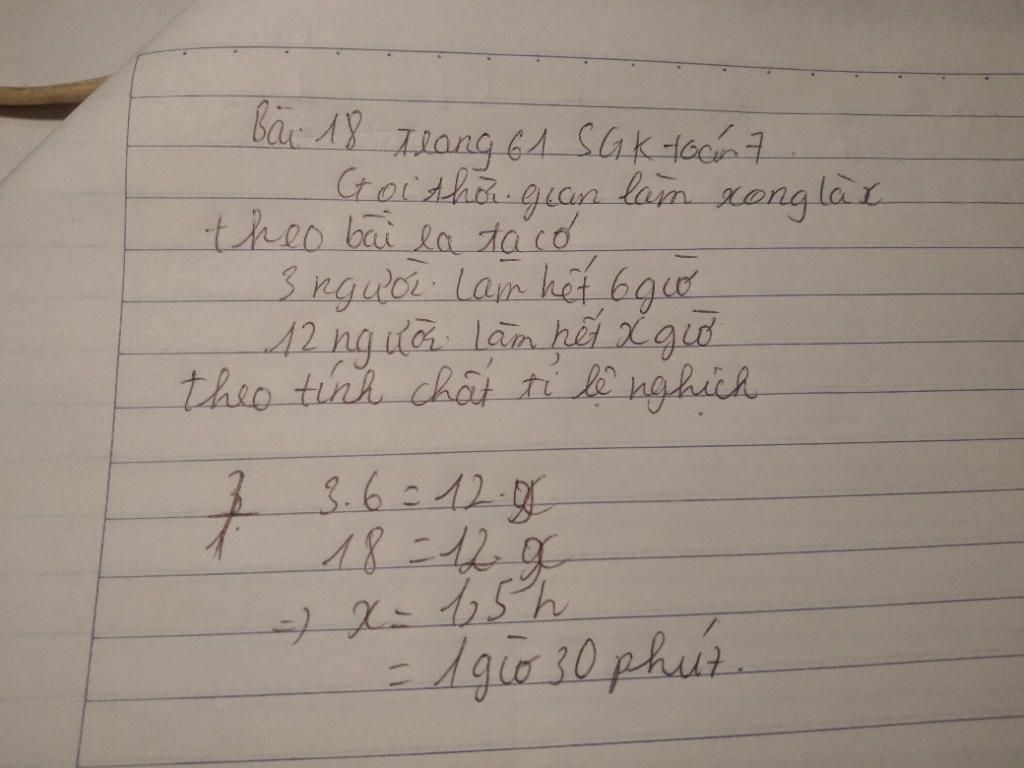 Bài 18 trang 61 SGK toán 7
Gọi thời gian làm xong là x
theo bài ra ta có
3 người làm hết 6 giờ
12 người làm hết x giờ
theo tính chất tỉ lệ nghịch
3.6 = 12.x
18 = 12.x
=> x = 1,5h
= 1 giờ 30 phút.